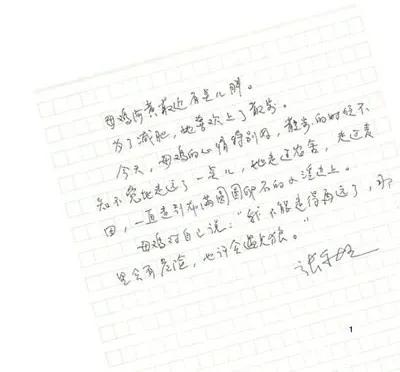 母鸡阿黄最近有点儿胖。
为了减肥，她喜欢上了散步。
今天，母鸡的心情特别好，散步的时候不
知不觉地走远了一点儿，她走过农舍，走过麦
田，一直走到布满圆圆卵石的水洼边上。
母鸡对自己说：“我不能走得再远了，那
里会有危险，也许会遇狼。”
张秋生
1